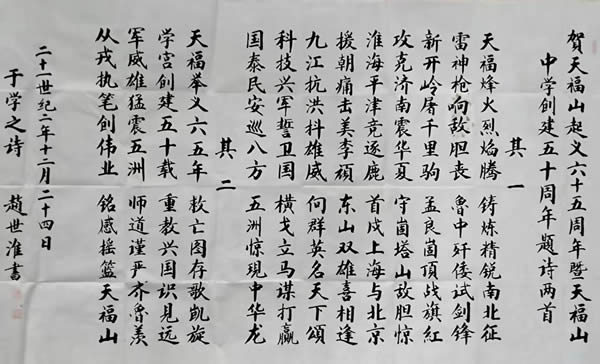 賀天福山起义六十五周年暨天福山
中学创建五十周年题诗两首
其一
天福烽火烈焰腾 铸炼精锐南北征
雷神枪响敌胆丧 鲁中歼倭试剑锋
新开岭屠千里驹 孟良崮頂战旗红
攻克济南震华夏 守塔山敌胆惊
淮海平津竞逐鹿 首戍上海与北京
援朝痛击美李頑 东山双雄喜相逢
九江抗洪抖雄威 何群英名天下頌
科技兴军誓卫国 横戈立马谋打赢
国泰民安巡八方 五洲惊现中华龙
其二
天福举义六五年 救亡图存歌凯旋
学宫创建五十载 重教兴国识见远
军威雄猛震五洲 师道谨严齐鲁羡
从戎执笔创伟业 铭感摇篮天福山
二十一世纪二年十二月二十四日
于学之诗 趙世淮書